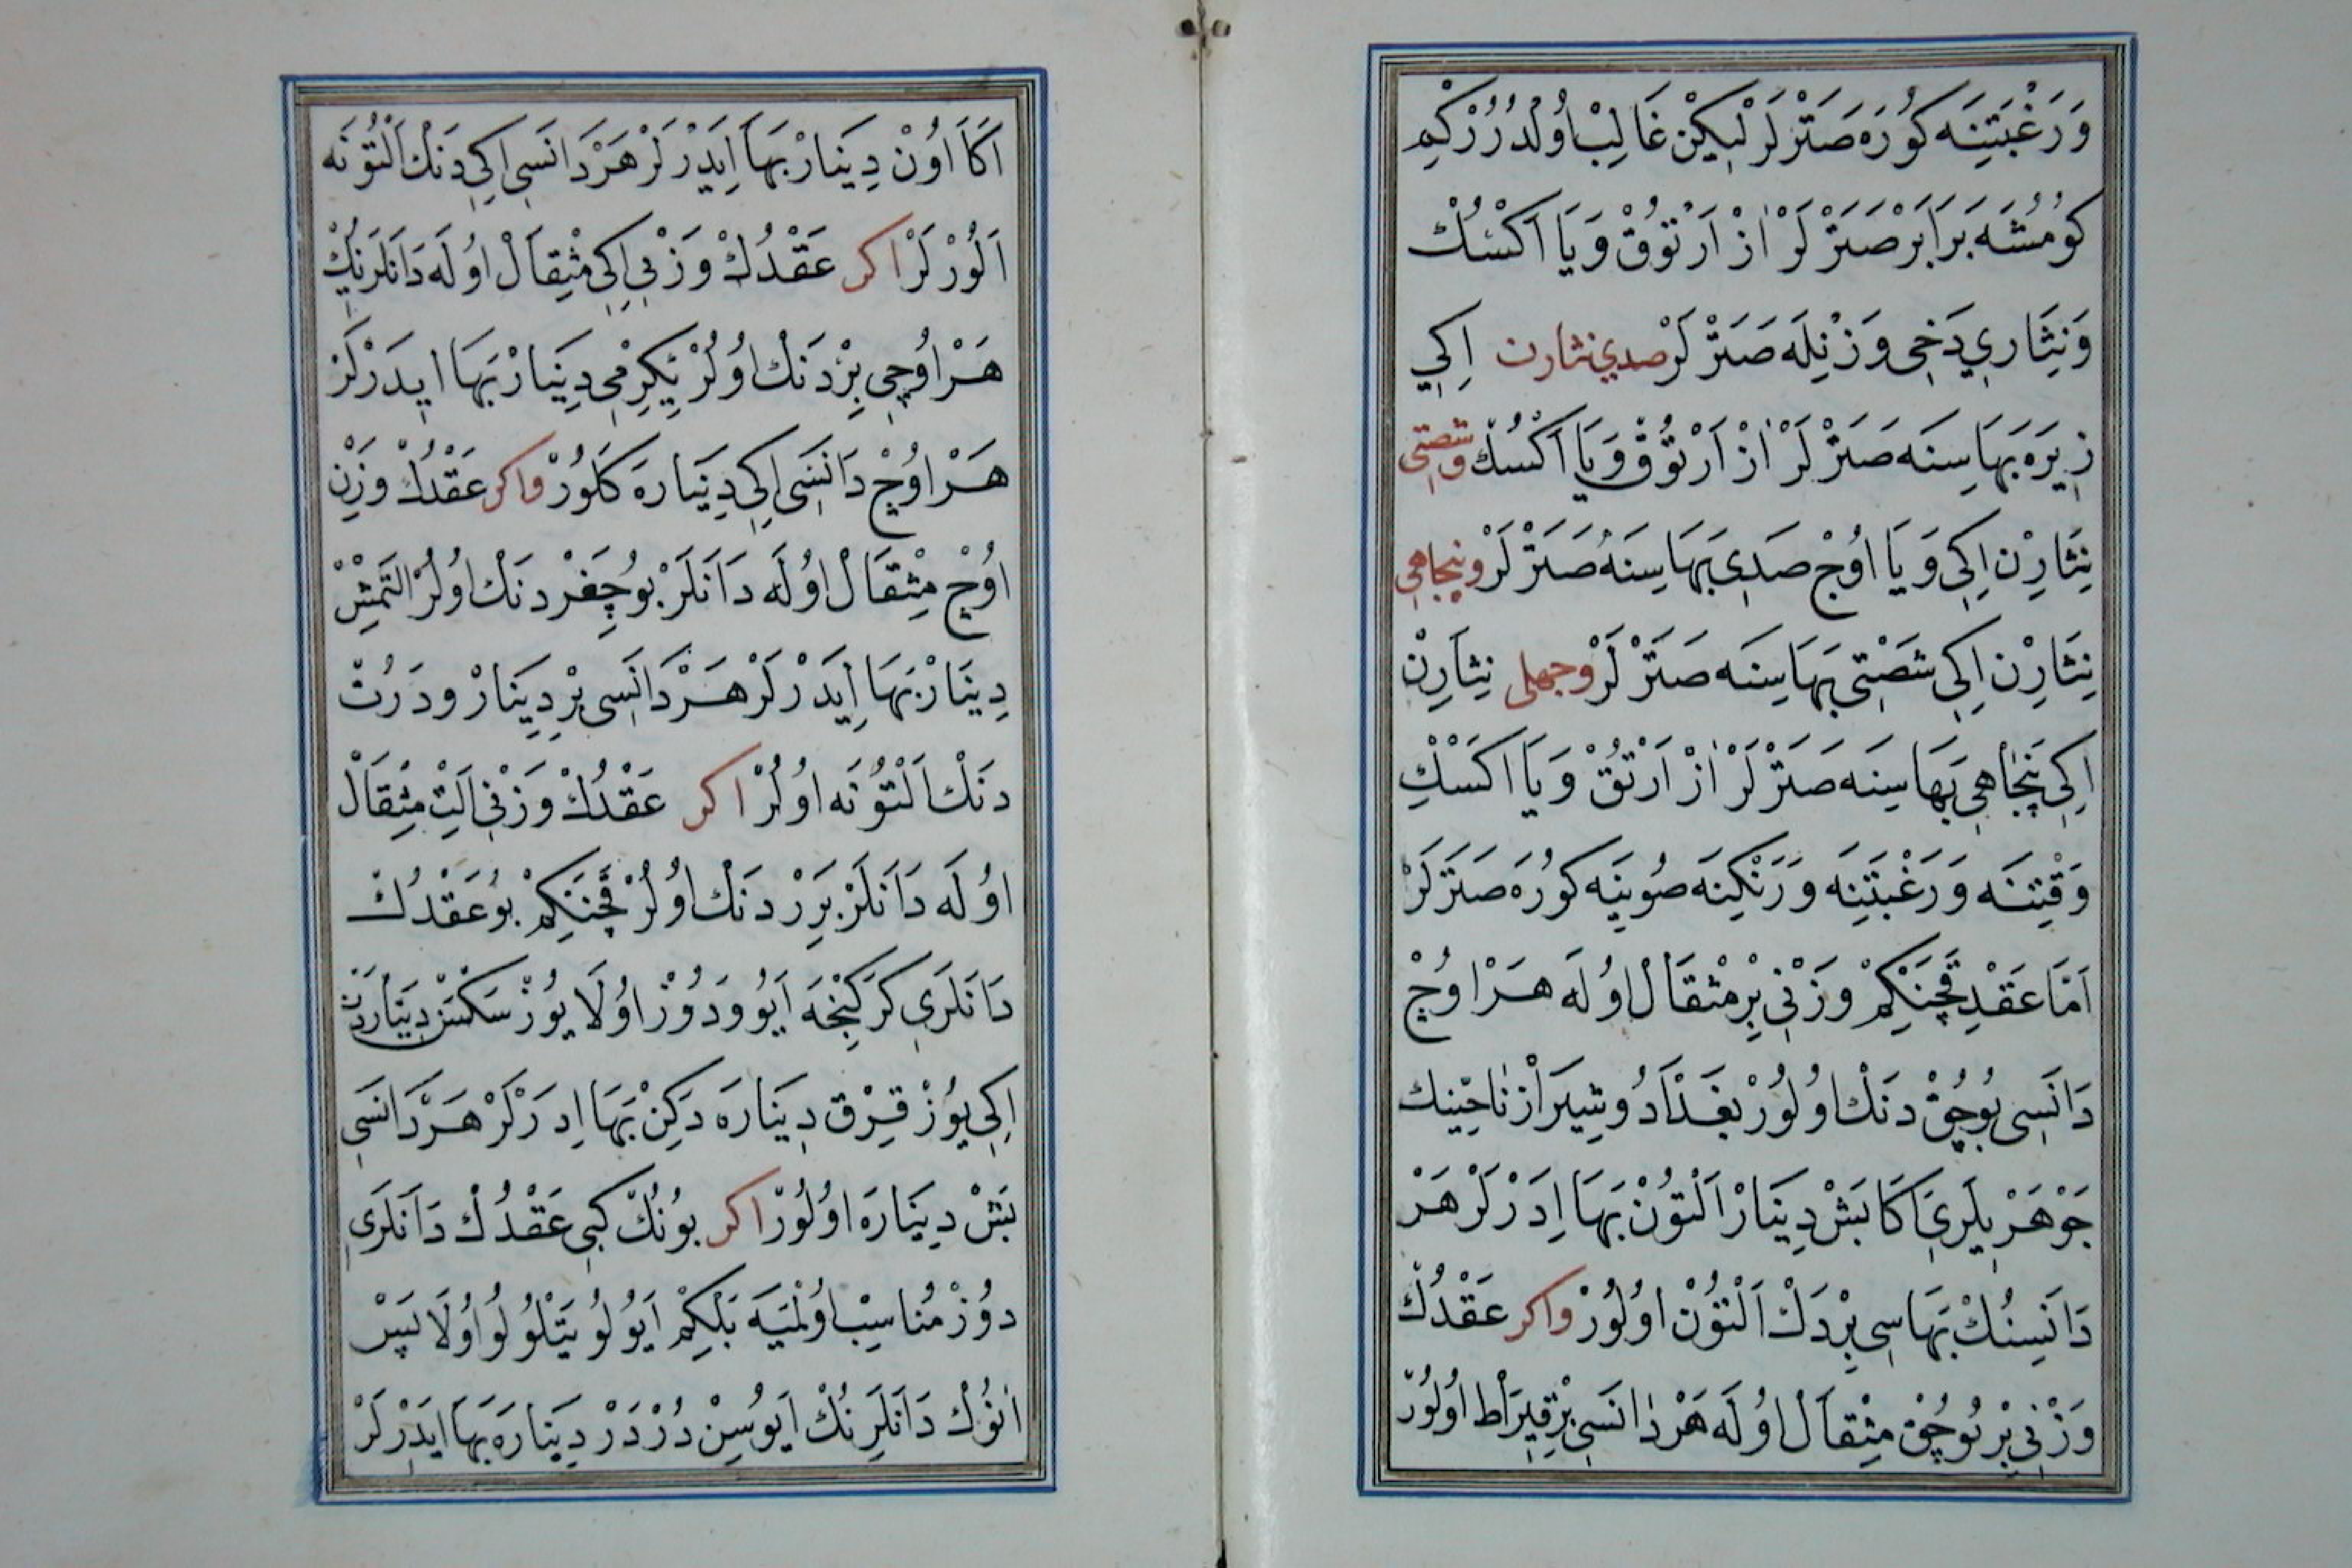 وَرَغْبَتِنَه كُورَه صَتَرْلَرْ لٰيكِنْ غَالِبْ اُولْدُرُرْكِمْ
كُومُشَه بَرَابَرْ صَتَرْلَرْ اٰزْ اَرْتُوقْ وَيَا اَكْسُكْ
وَنِثَارِي دَخِي وَزْنِلَه صَتَرْلَرْ صدي نثارن اِكِي
زِيرَه بَهَاسِنَه صَتَرْلَرْ اٰزْ اَرْتُوقْ وَيَا اَكْسُكْ وشصتی
نِثَارِنْ اِكِي وَيَا اُوچْ صَدِي بَهَاسِنَه صَتَرْلَرْ وپنجاهی
نِثَارِنْ اِكِي شَصْتِي بَهَاسِنَه صَتَرْلَرْ وچهلی نِثَارِنْ
اِكِي پَنْجَاهِي بَهَاسِنَه صَتَرْلَرْ اٰزْ اَرْتُقْ وَيَا اَكْسَكْ
وَقْتِنَه وَرَغْبَتِنَه وَرَنْكِنَه صُويِنَه كُورَه صَتَرْلَرْ
اَمَّا عَقْدِ قَچَنْكِمْ وَزْنِي بِرْ مِثْقَالْ اُولَه هَرْ اُوچْ
دَانَسِي بُوچُقْ دَنْكْ اُولُورْ بَغْدَادُ وشِيرَازْ نَاحِينِك
جَوْهَرْ بِلَرِي اَكَا بَشْ دِينَارْ اَلْتُونْ بَهَا اِدَرْلَرْ هَرْ
دَانَسِنُكْ بَهَاسِي بِرْ دَكْ اَلْتُونْ اُولُورْ واكر عَقْدُكْ
وَزْنِي بِرْ بُوچُقْ مِثْقَالْ اُولَه هَرْ دَانَسِي بِرْ قِيرَاطْ اُولُورْ
اَكَا اُونْ دِينَارْ بَهَا اِيَدَرْلَرْ هَرْ دَانَسِي اِكِي دَنْكْ اَلْتُونَه
اَلُورْلَرْ اكر عَقْدُكْ وَزْنِي اِكِي مِثْقَالْ اُولَه دَانَلَرِنُكْ
هَرْ اُوچِي بِرْ دَنْكْ اُولُرْ يِكِرْمِي دِينَارْ بَهَا اِيدَرْلَرْ
هَرْ اُوچْ دَانَسِي اِكِي دِينَارَه كَلُورْ واكر عَقْدُكْ وَزْنِ
اُوچْ مِثْقَالْ اُولَه دَانَلَرْ بُوچِغَرْ دَنْكْ اُولُرْ اَلْتَمِشْ
دِينَارْ بَهَا اِيدَرْلَرْ هَرْ دَانَسِي بِرْ دِينَارْ ودَرُتْ
دَنْكْ اَلْتُونَه اُولُرْ اكر عَقْدُكْ وَزْنِي اَلْتِ مِثْقَالْ
اُولَه دَانَلَرْ بِرَرْ دَنْكْ اُولُرْ قَچَنْكِمْ بُوعَقْدُكْ
دَانَلَرِي كَرَكِنْجَه اَيُو ودُوزْ اُولَا يُوزْ سَكْسَنْ دِينَارْدَنْ
اِكِي يُوزْ قِرْقْ دِينَارَه دَكِنْ بَهَا اِدَرْلَرْ هَرْ دَانَسِي
بَشْ دِينَارَه اُولُورْ اكر بُونُكْ كِبِي عَقْدُكْ دَانَلَرِي
دُوزْ مُنَاسِبْ اُولْمَيَه بَلْكِمْ اَيُولُو يَتْلُولُو اُولَا پَسْ
اٰنُوكْ دَانَلَرِنُكْ اَيُوسِنْ دُرْدَرْ دِينَارَه بَهَا اِيدَرْلَرْ